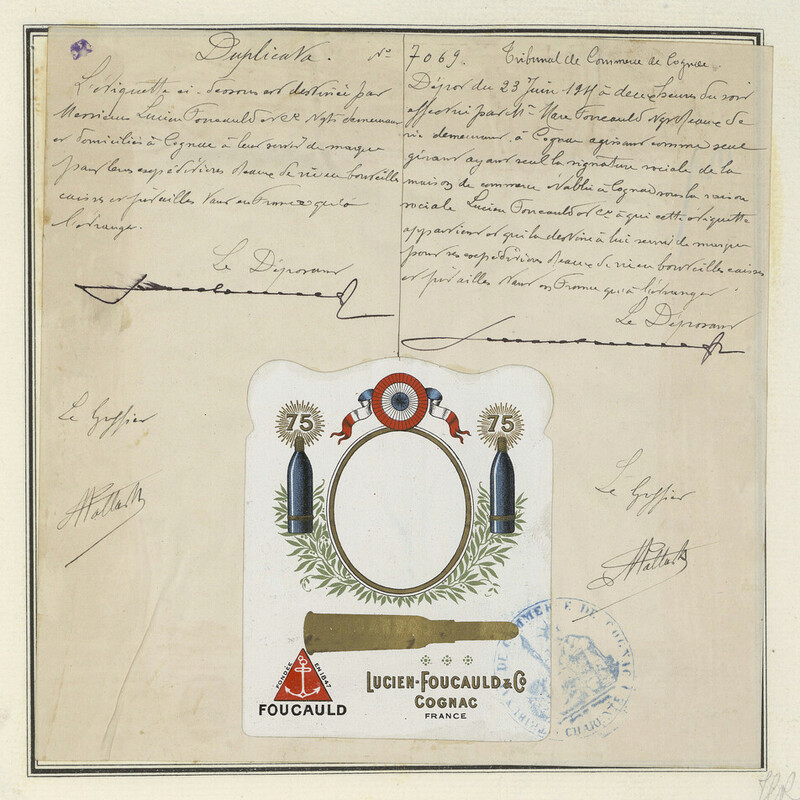 Duplicata.
L'étiquette ci-dessous est destinée par
Messieurs Lucien Foucauld et Cie Ngts demeurant
et domiciliés à Cognac à leur servir de marque
pour leurs expéditions d'eaux de vie en bouteilles
caisses et futailles tant en France qu'à
l'étranger.
Le Déposant
No 7069. Tribunal de Commerce de Cognac.
Dépôt du 23 Juin à deux heures du soir
effectué par Mr Marc Foucauld Ngt d'eaux de
vie demeurant à Cognac agissant comme seul
gérant ayant seul la signature sociale de la
maison de commerce établie à Cognac sous la raison
sociale Lucien Foucauld et Cie à qui cette étiquette
appartient et qui la destine à lui servir de marque
pour ses expéditions d'eaux de vie en bouteilles caisses
et futailles tant en France qu'à l'étranger.
Le Déposant
Le Greffier
Le Greffier
75
75
FONDÉE EN 1847
FOUCAULD
LUCIEN-FOUCAULD & Co
COGNAC
FRANCE
TRIBUNAL DE COMMERCE DE COGNAC
CHARENTE